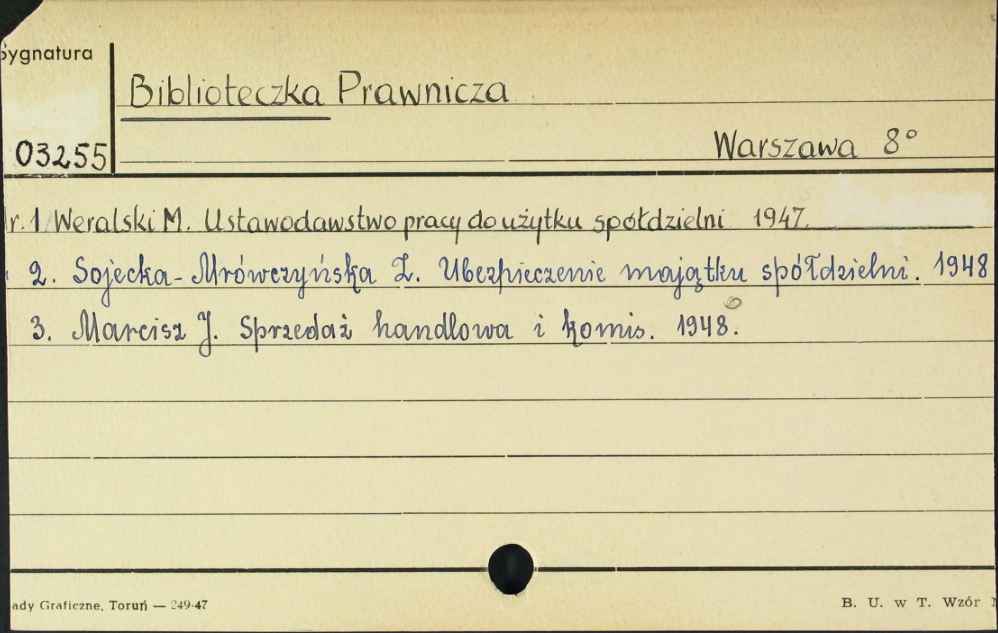 Sygnatura
Biblioteczka Prawnicza
03255
Warszawa 8°
r. 1 Weralski M. Ustawodawstwo pracy do użytku spółdzielni 1947.
2. Sojecka-Mrówczyńska Z. Ubezpieczenie majątku spółdzielni. 1948
3. Marcisz J. Sprzedaż handlowa i komis. 1948.
ady Graficzne, Toruń — 249-47
B. U. w T. Wzór